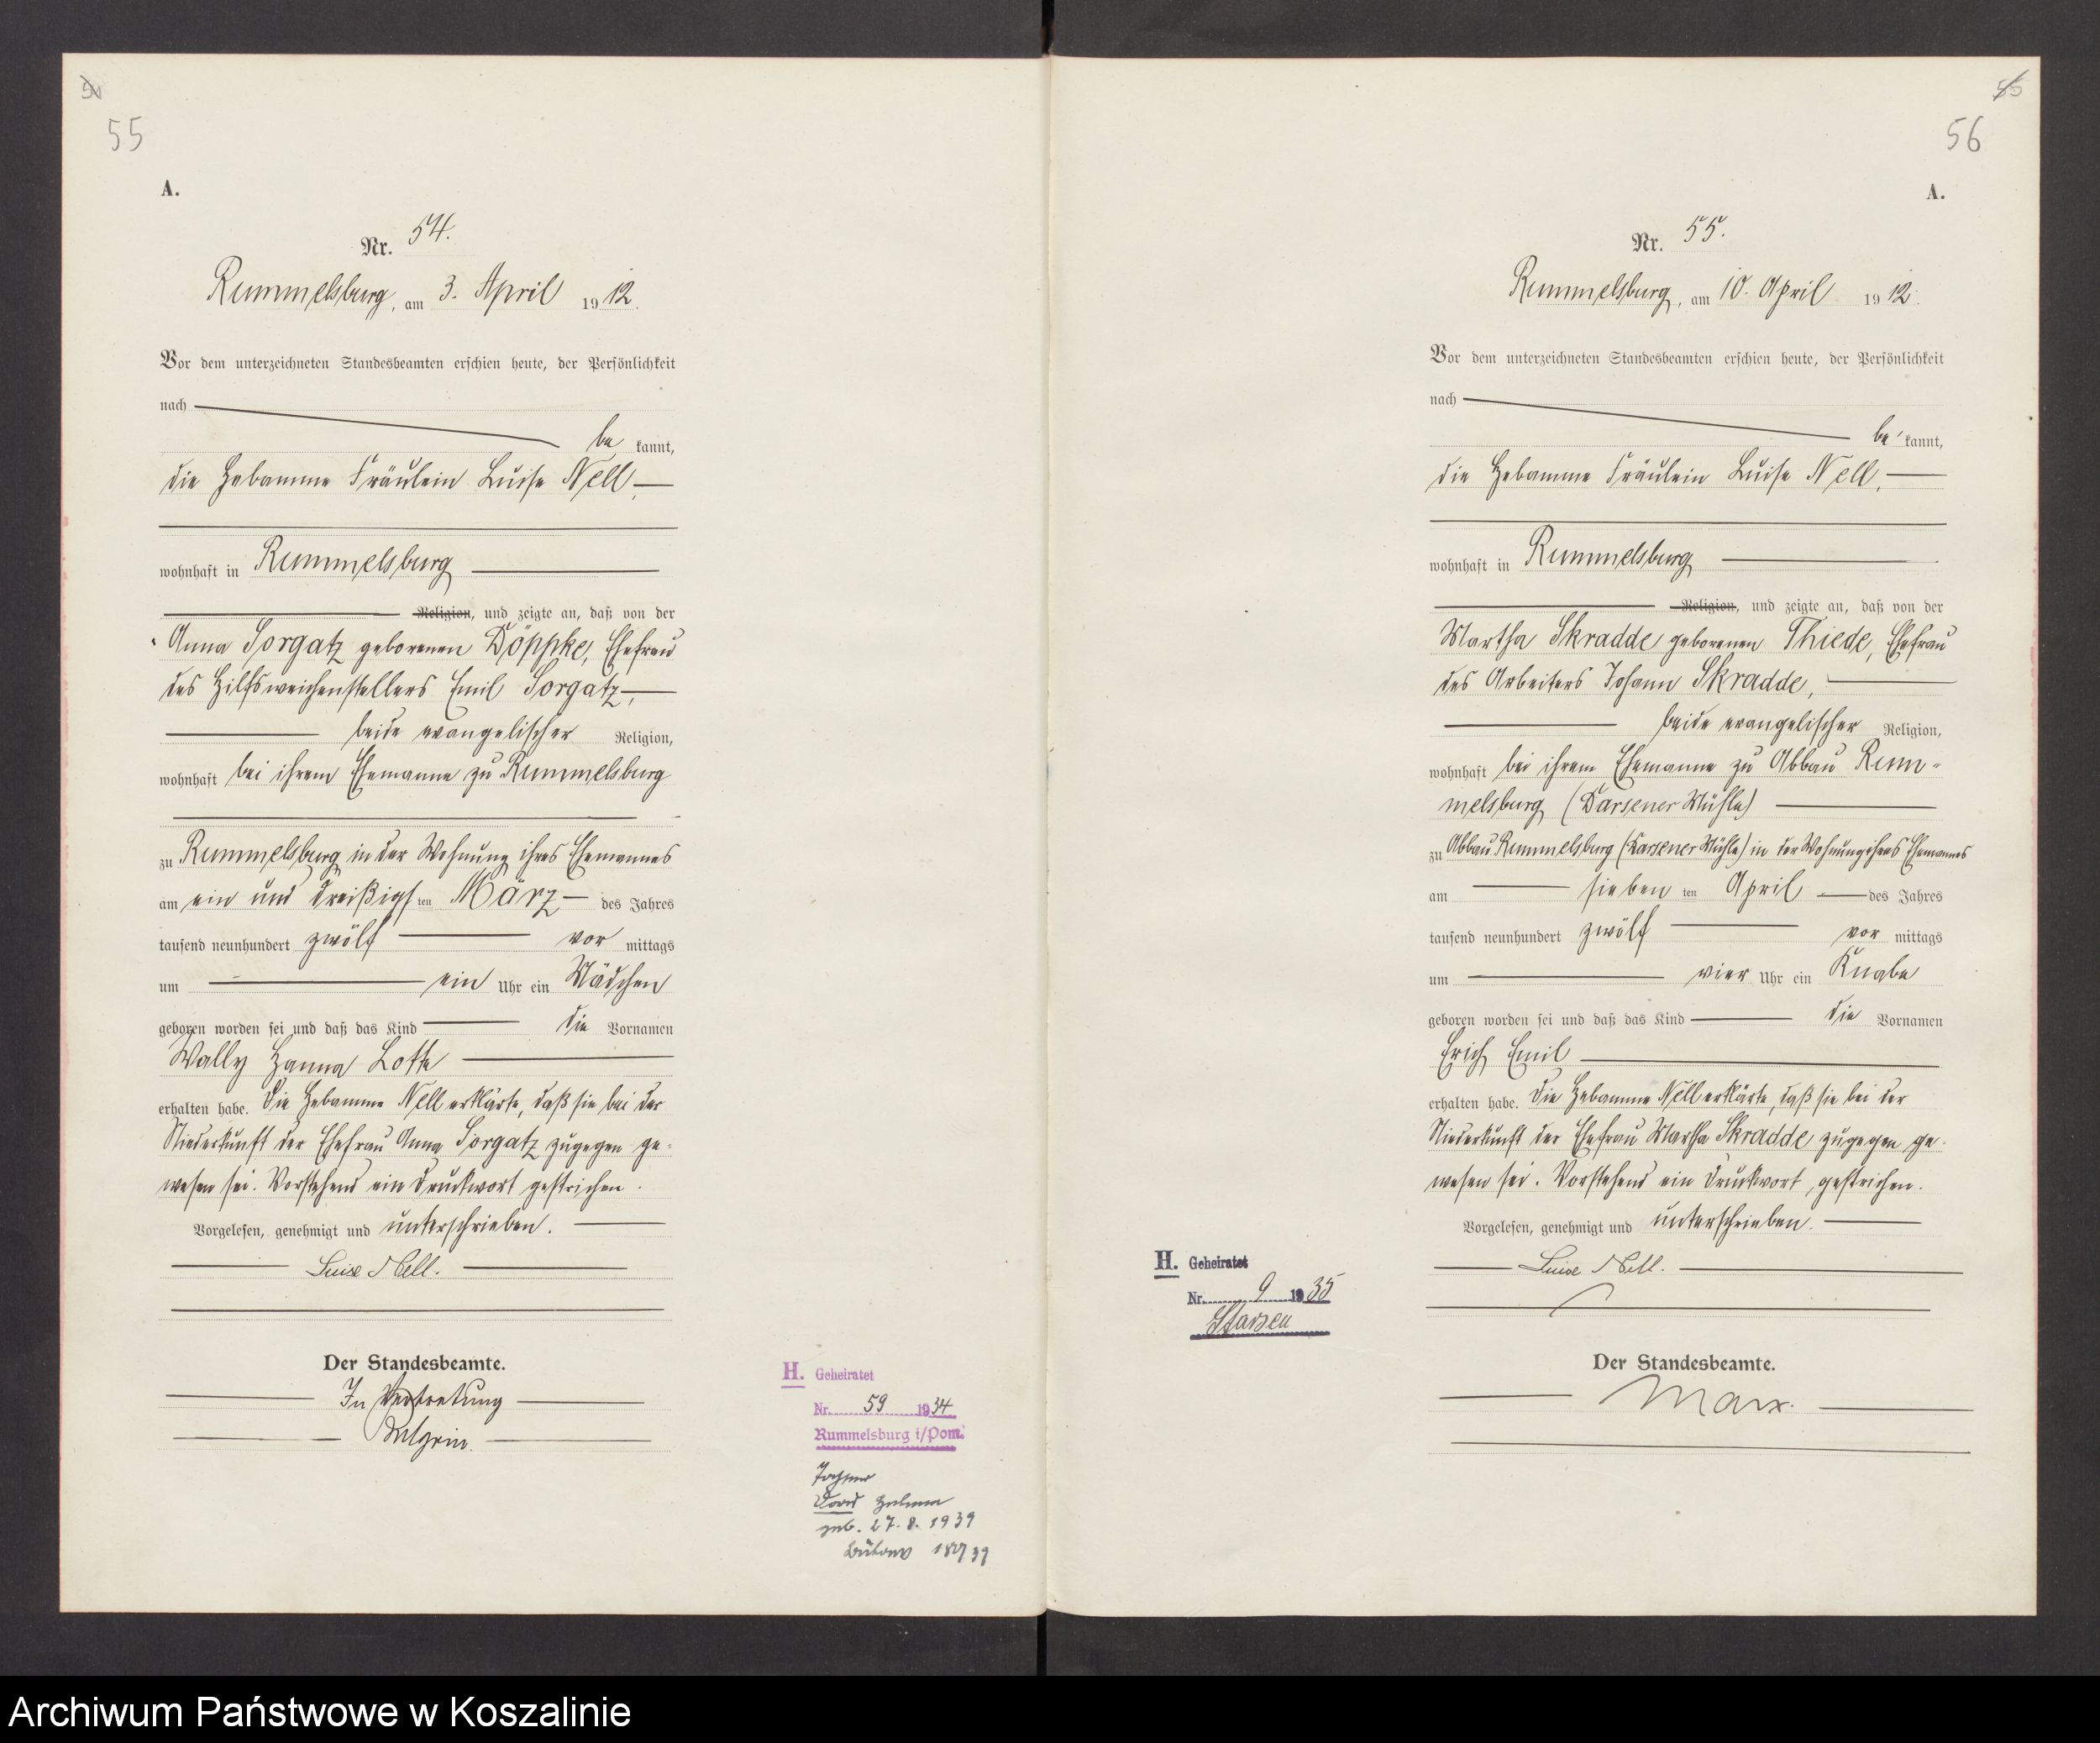 55
A.
Nr. 54.
Rummelsburg, am 3. April 1912.
Vor dem unterzeichneten Standesbeamten erschien heute, der Persönlichkeit
nach
be kannt,
die Hebamme Fräulein Luise Nell,
wohnhaft in Rummelsburg
Religion, und zeigte an, daß von der
Anna Sorgatz geborenen Döppke, Ehefrau
des Hilfsweichenstellers Emil Sorgatz,
beide evangelischer Religion,
wohnhaft bei ihrem Ehemanne zu Rummelsburg
zu Rummelsburg in der Wohnung ihres Ehemannes
am ein und dreißigsten März des Jahres
tausend neunhundert zwölf vor mittags
um ein Uhr ein Mädchen
geboren worden sei und daß das Kind die Vornamen
Wally Hanna Lotte
erhalten habe. Die Hebamme Nell erklärte, daß sie bei der
Niederkunft der Ehefrau Anna Sorgatz zugegen ge-
wesen sei. Vorstehend ein Druckwort gestrichen.
Vorgelesen, genehmigt und unterschrieben.
Luise Nell.
Der Standesbeamte.
In Vertretung
H. Geheiratet
Nr. 59 1934
Rummelsburg i/Pom.
geb. 27.8.1939
Bütow 39
56
A.
Nr. 55.
Rummelsburg, am 10. April 1912.
Vor dem unterzeichneten Standesbeamten erschien heute, der Persönlichkeit
nach
be kannt,
die Hebamme Fräulein Luise Nell,
wohnhaft in Rummelsburg
Religion, und zeigte an, daß von der
Martha Skradde geborenen Thiede, Ehefrau
des Arbeiters Johann Skradde,
beide evangelischer Religion,
wohnhaft bei ihrem Ehemanne zu Abbau Rum-
melsburg (Darsener Mühle)
zu Abbau Rummelsburg (Darsener Mühle) in der Wohnung ihres Ehemannes
am siebenten April des Jahres
tausend neunhundert zwölf vor mittags
um vier Uhr ein Knabe
geboren worden sei und daß das Kind die Vornamen
Erich Emil
erhalten habe. Die Hebamme Nell erklärte, daß sie bei der
Niederkunft der Ehefrau Martha Skradde zugegen ge-
wesen sei. Vorstehend ein Druckwort gestrichen.
Vorgelesen, genehmigt und unterschrieben.
Luise Nell.
Der Standesbeamte.
Marx.
H. Geheiratet
Nr. 9 1935
Starsen
Archiwum Państwowe w Koszalinie